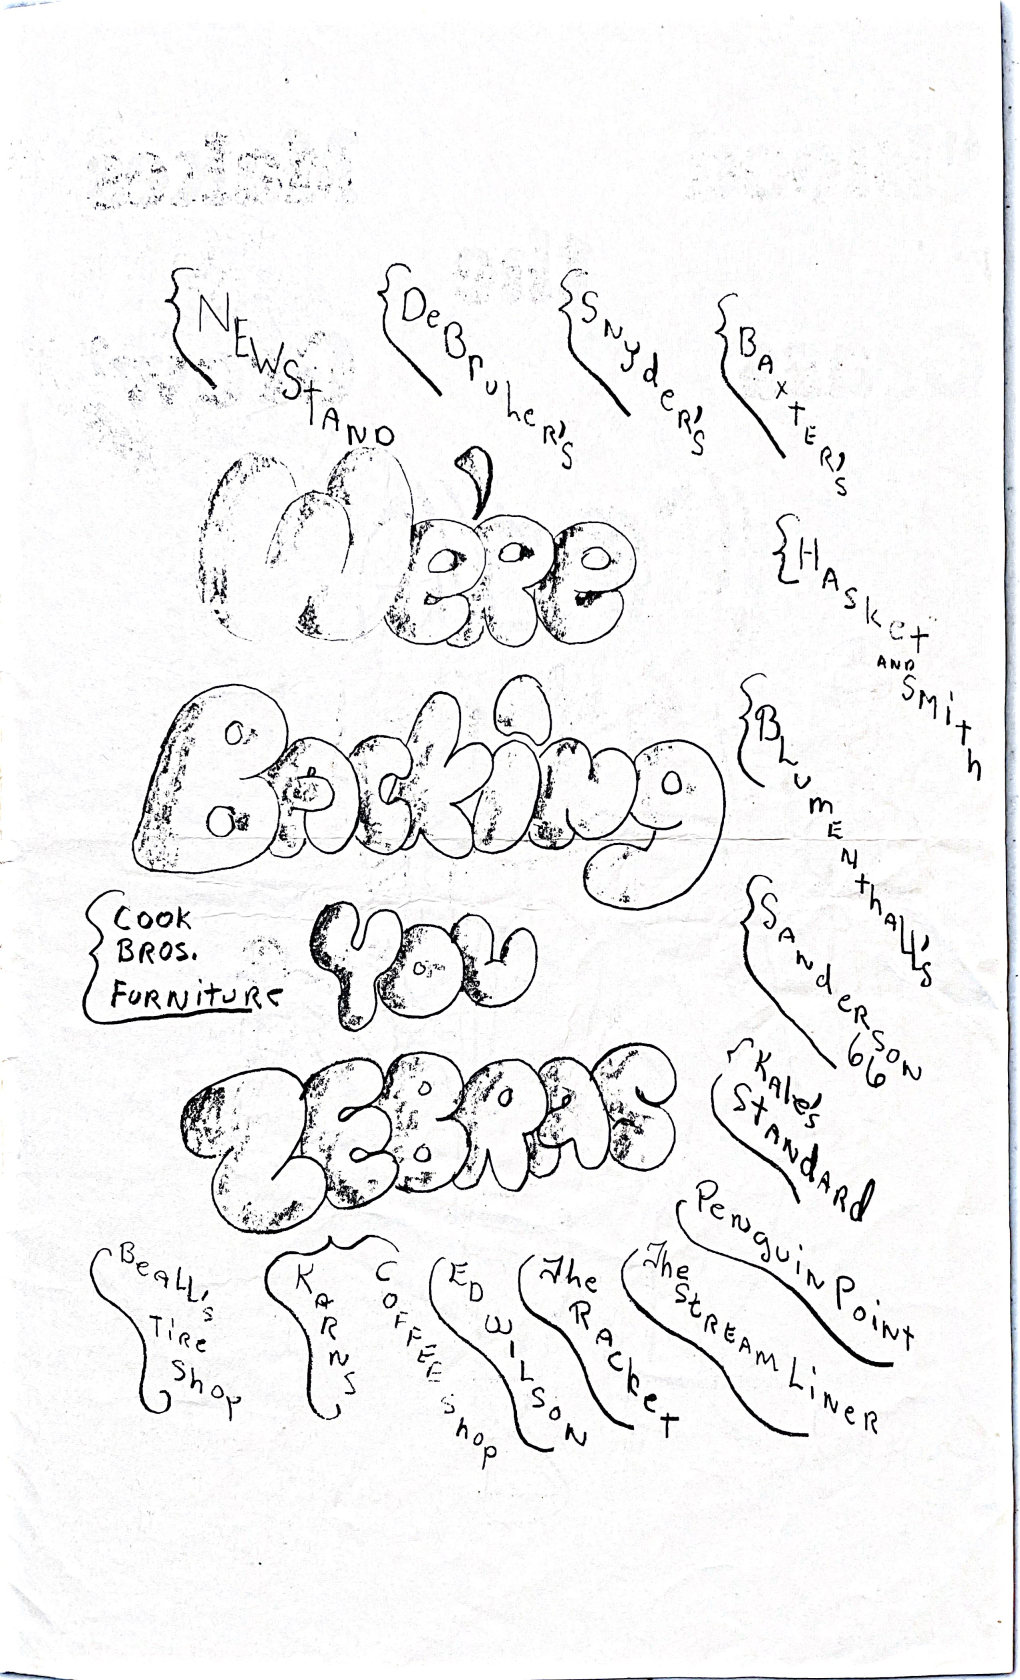 NEWStAND
DeBruher's
SnydeR's
BAxtER's
We're
HASKet
AND
SMith
Backing
BLumENthALL's
COOK
BROS.
FURNitURE
YOU
SAndeRSON
66
ZEBRAS
KAle's
StANdARd
PeNguiN PoiNt
BeALL's
TiRe
Shop
KARNS
COFFEE Shop
ED WILSON
The
RAcket
The
StREAM LiNeR